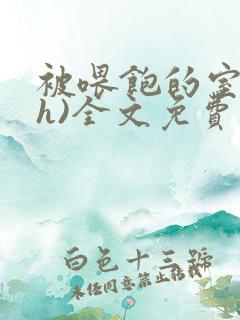 被喂飽的室
h)全文免費
白色十三號
未经同意禁止转载